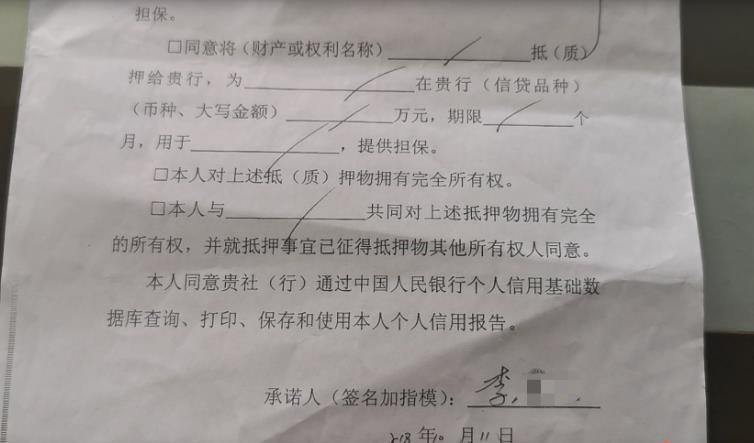 担保。
□同意将（财产或权利名称）____________抵（质）
押给贵行，为______________在贵行（信贷品种）
（币种、大写金额）_________万元，期限________个
月，用于____________，提供担保。
□本人对上述抵（质）押物拥有完全所有权。
□本人与____________共同对上述抵押物拥有完全
的所有权，并就抵押事宜已征得抵押物其他所有权人同意。
本人同意贵社（行）通过中国人民银行个人信用基础数
据库查询、打印、保存和使用本人个人信用报告。
承诺人（签名加指模）：李
年10月11日